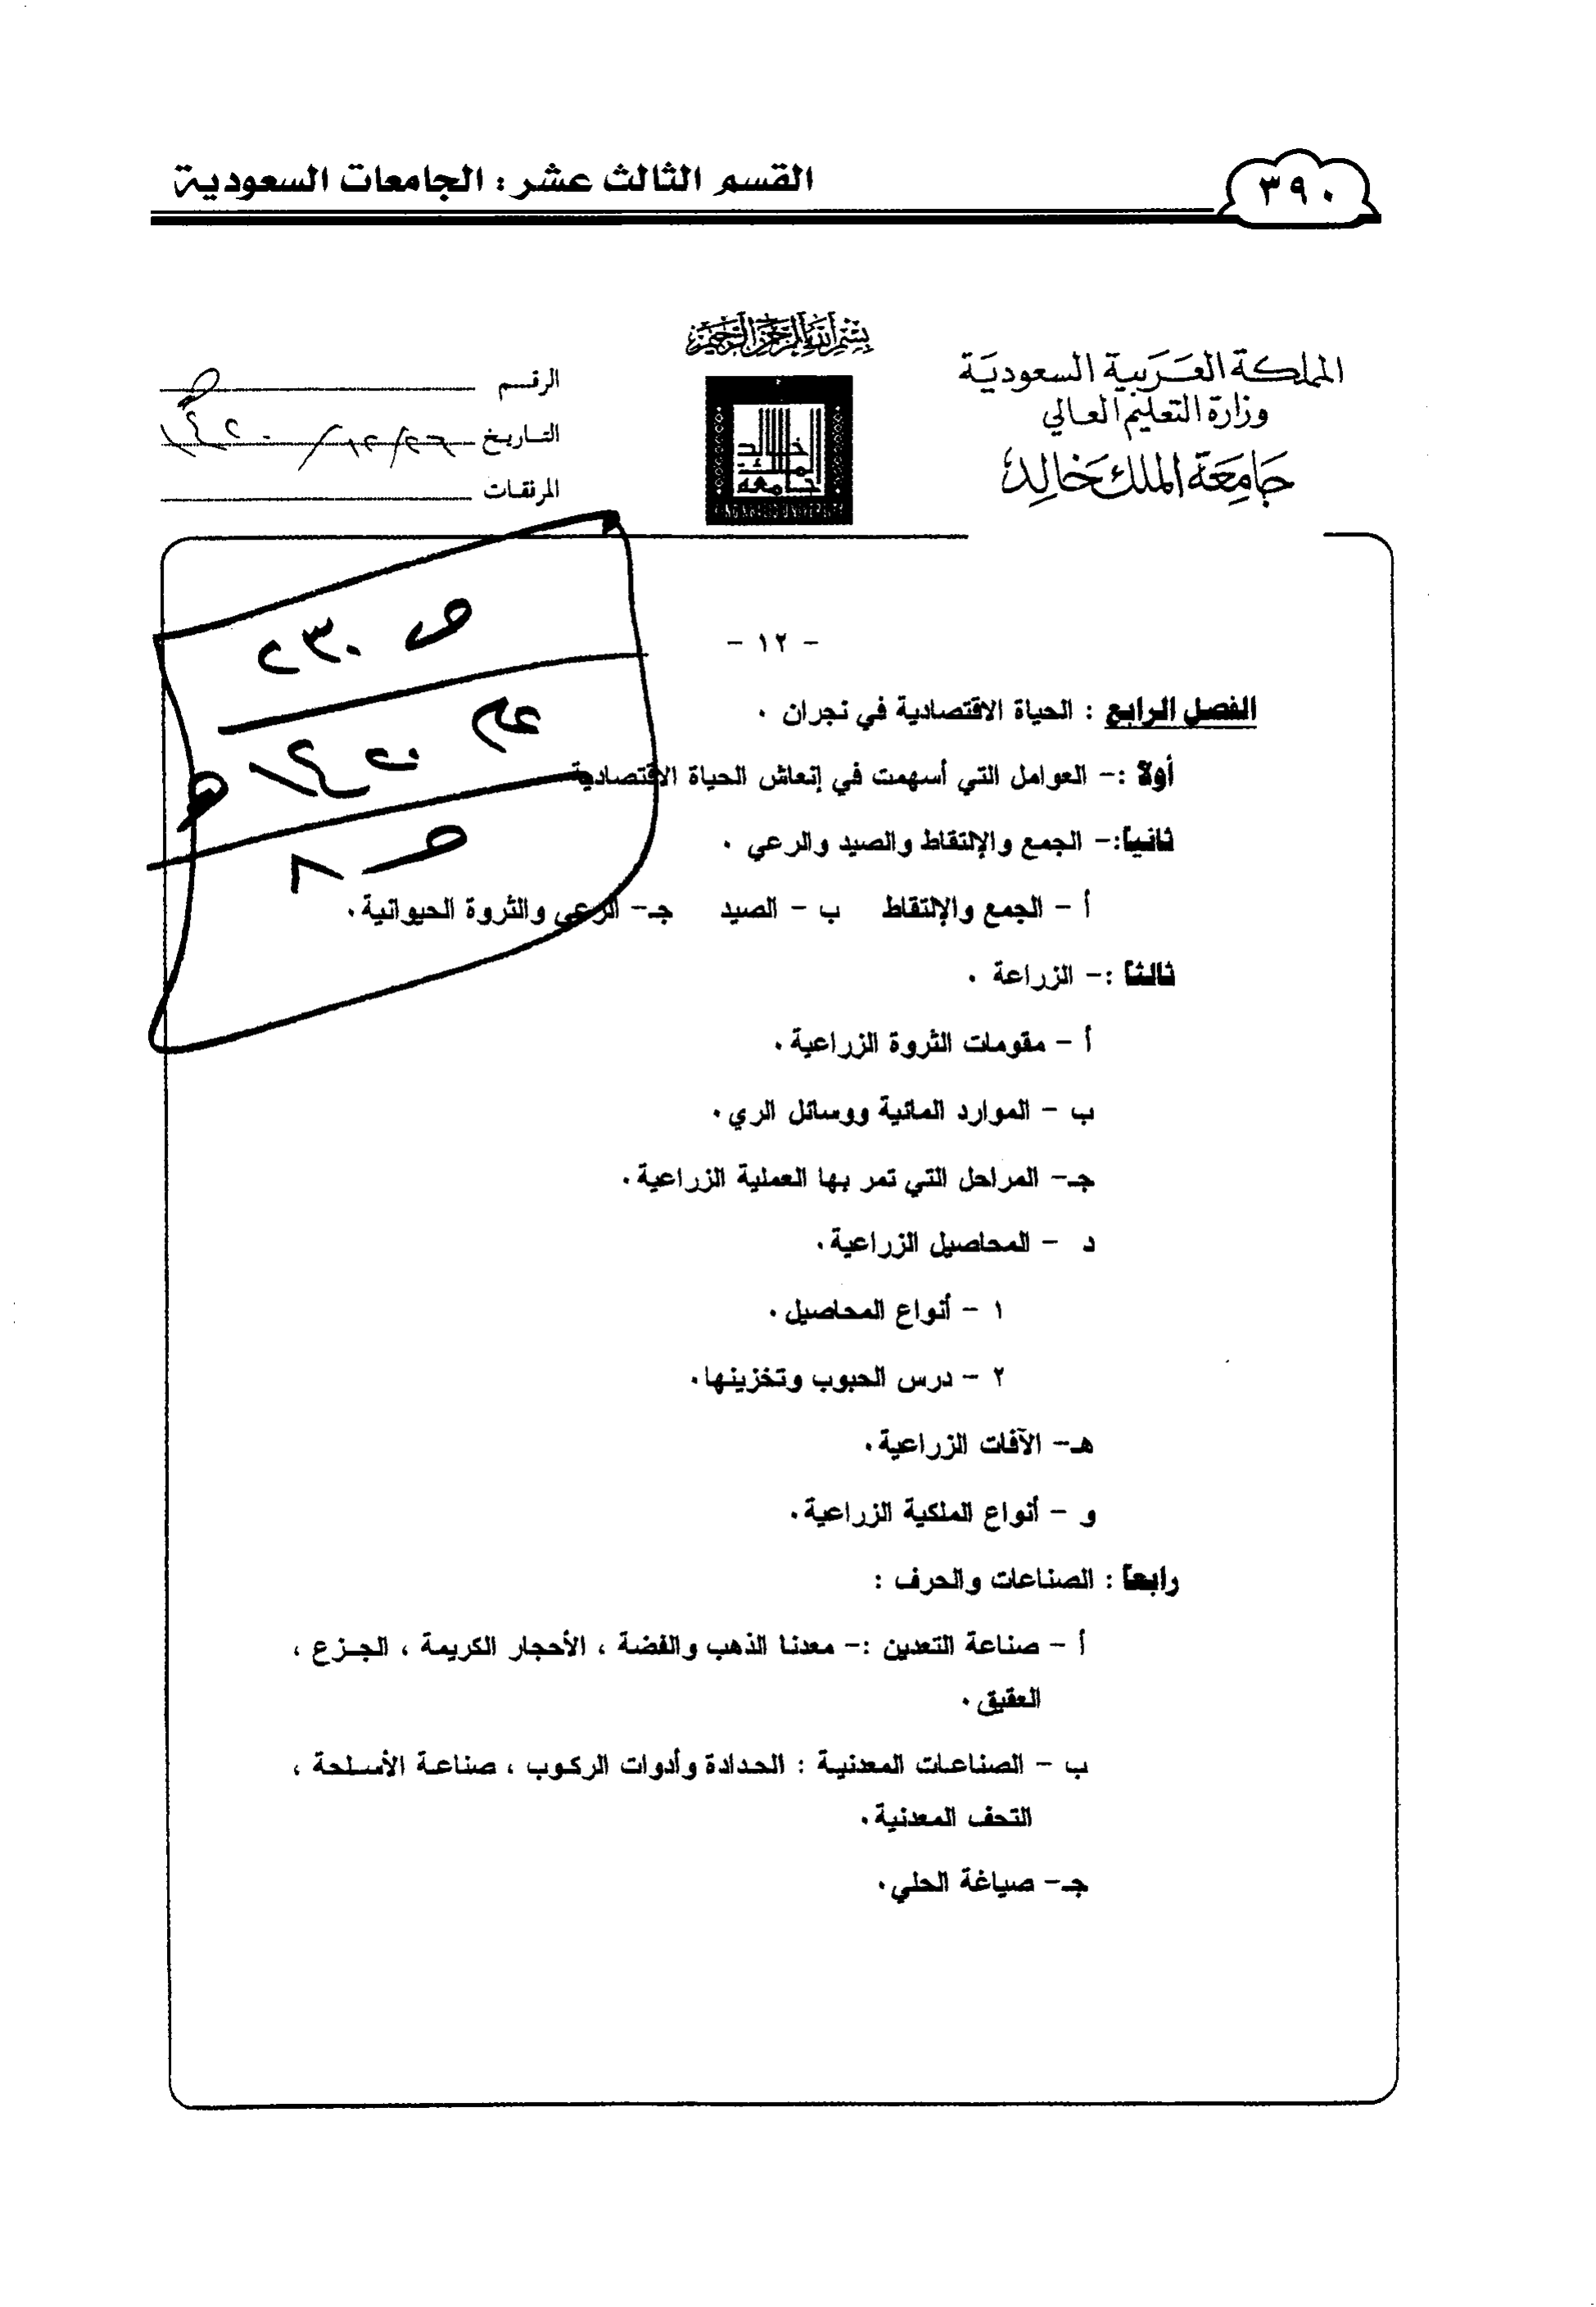 القسم الثالث عشر : الجامعات السعودية
٣٩٠
بسم الله الرحمن الرحيم
المملكة العربية السعودية
وزارة التعليم العالي
جامعة الملك خالد
خالد
الملك
جامعة
KING KHALID UNIVERSITY
الرقم
التاريخ ٢٦/١٢/١٤٢٠
المرفقات
ص ٢٣٠
عام ١٤٢٠هـ
ص ٨
- ١٢ -
الفصل الرابع : الحياة الاقتصادية في نجران .
أولاً :- العوامل التي أسهمت في إنعاش الحياة الاقتصادية
ثانياً:- الجمع والإلتقاط والصيد والرعي .
أ - الجمع والإلتقاط ب - الصيد جـ- الرعي والثروة الحيوانية.
ثالثاً :- الزراعة .
أ - مقومات الثروة الزراعية.
ب - الموارد المائية ووسائل الري.
جـ- المراحل التي تمر بها العملية الزراعية.
د - المحاصيل الزراعية.
١ - أنواع المحاصيل.
٢ - درس الحبوب وتخزينها.
هـ- الآفات الزراعية.
و - أنواع الملكية الزراعية.
رابعاً : الصناعات والحرف :
أ - صناعة التعدين :- معدنا الذهب والفضة ، الأحجار الكريمة ، الجـزع ،
العقيق.
ب - الصناعات المعدنية : الحدادة وأدوات الركوب ، صناعة الأسـلحة ،
التحف المعدنية.
جـ- صياغة الحلي.